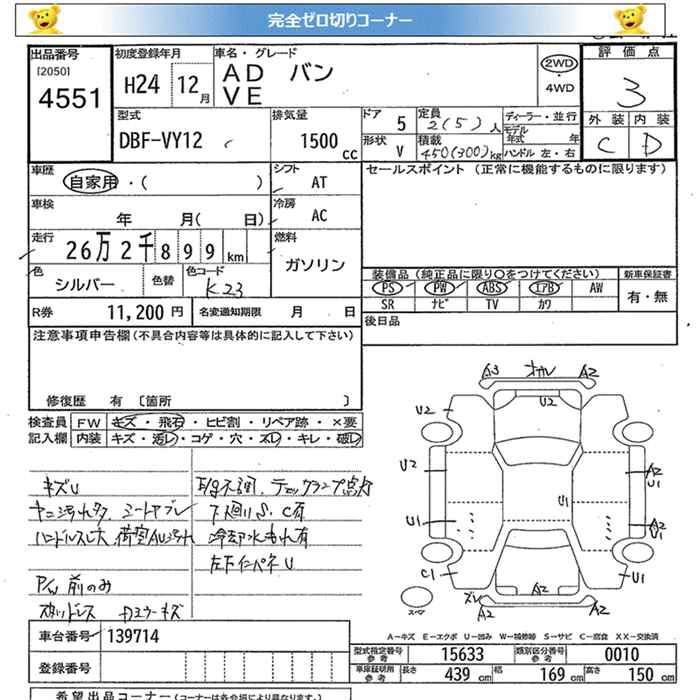 完全ゼロ切りコーナー
出品番号 初度登録年月 車名・グレード 評価点
[2050]
4551 H24 12月 AD バン 2WD ・4WD 3
VE
型式 排気量 ドア 5 定員 2(5)人 ディーラー・並行 外装 内装
DBF-VY12 1500cc 形状 V 積載 450(300)kg モデル年式 年 C D
ハンドル 左・右
車歴 シフト セールスポイント(正常に機能するものに限ります)
自家用・( ) AT
車検 冷房
年 月( 日) AC
走行 燃料
26万2千899km ガソリン
色 色替 色コード 装備品(純正品に限り○をつけてください) 新車保証書
シルバー K23 PS PW ABS エアB AW 有・無
SR ナビ TV カワ
R券 11,200円 名変通知期限 月 日 後日品
注意事項申告欄(不具合内容等は具体的に記入して下さい)
修復歴 有 〔箇所 〕
検査員 FW キズ・飛石・ヒビ割・リペア跡・×要
記入欄 内装 キズ・汚レ・コゲ・穴・スレ・キレ・破レ
A3 オカレ A2
U2 U2
U2 A2
U1
U1
U1 A2
U1
C1 A2 U1
ズレ A2 A2
スペア
キズU
下廻りS、C有
冷却水もれ有
左下インパネU
P/W 前のみ
A－キズ E－エクボ U－凹み W－補修跡 S－サビ C－腐食 XX－交換済
車台番号 139714
型式指定番号 参考 15633 類別区分番号 参考 0010
登録番号
車庫証明用 参考 長さ 439 cm 幅 169 cm 高さ 150 cm
希望出品コーナー(コーナーは各会場により異なります。)